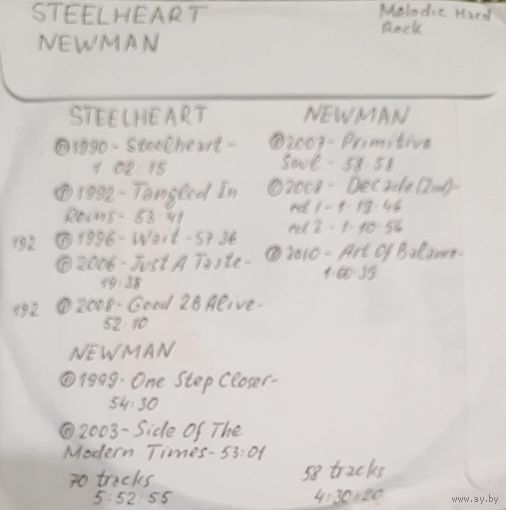 STEELHEART
NEWMAN
Melodic Hard
Rock
STEELHEART
©1990-Steelheart-
1:02:15
©1992-Tangled In
Reins-53:41
192 ©1996-Wait-57:36
©2006-Just A Taste-
19:38
192 ©2008-Good 2B Alive-
52:10
NEWMAN
©1999-One Step Closer-
54:30
©2003-Side Of The
Modern Times-53:01
70 tracks
5:52:55
NEWMAN
©2007-Primitive
Soul-58:58
©2008-Decade(2cd)-
cd 1-1:13:46
cd 2-1:10:56
©2010-Art Of Balance-
1:00:39
58 tracks
4:30:20
www.ay.by